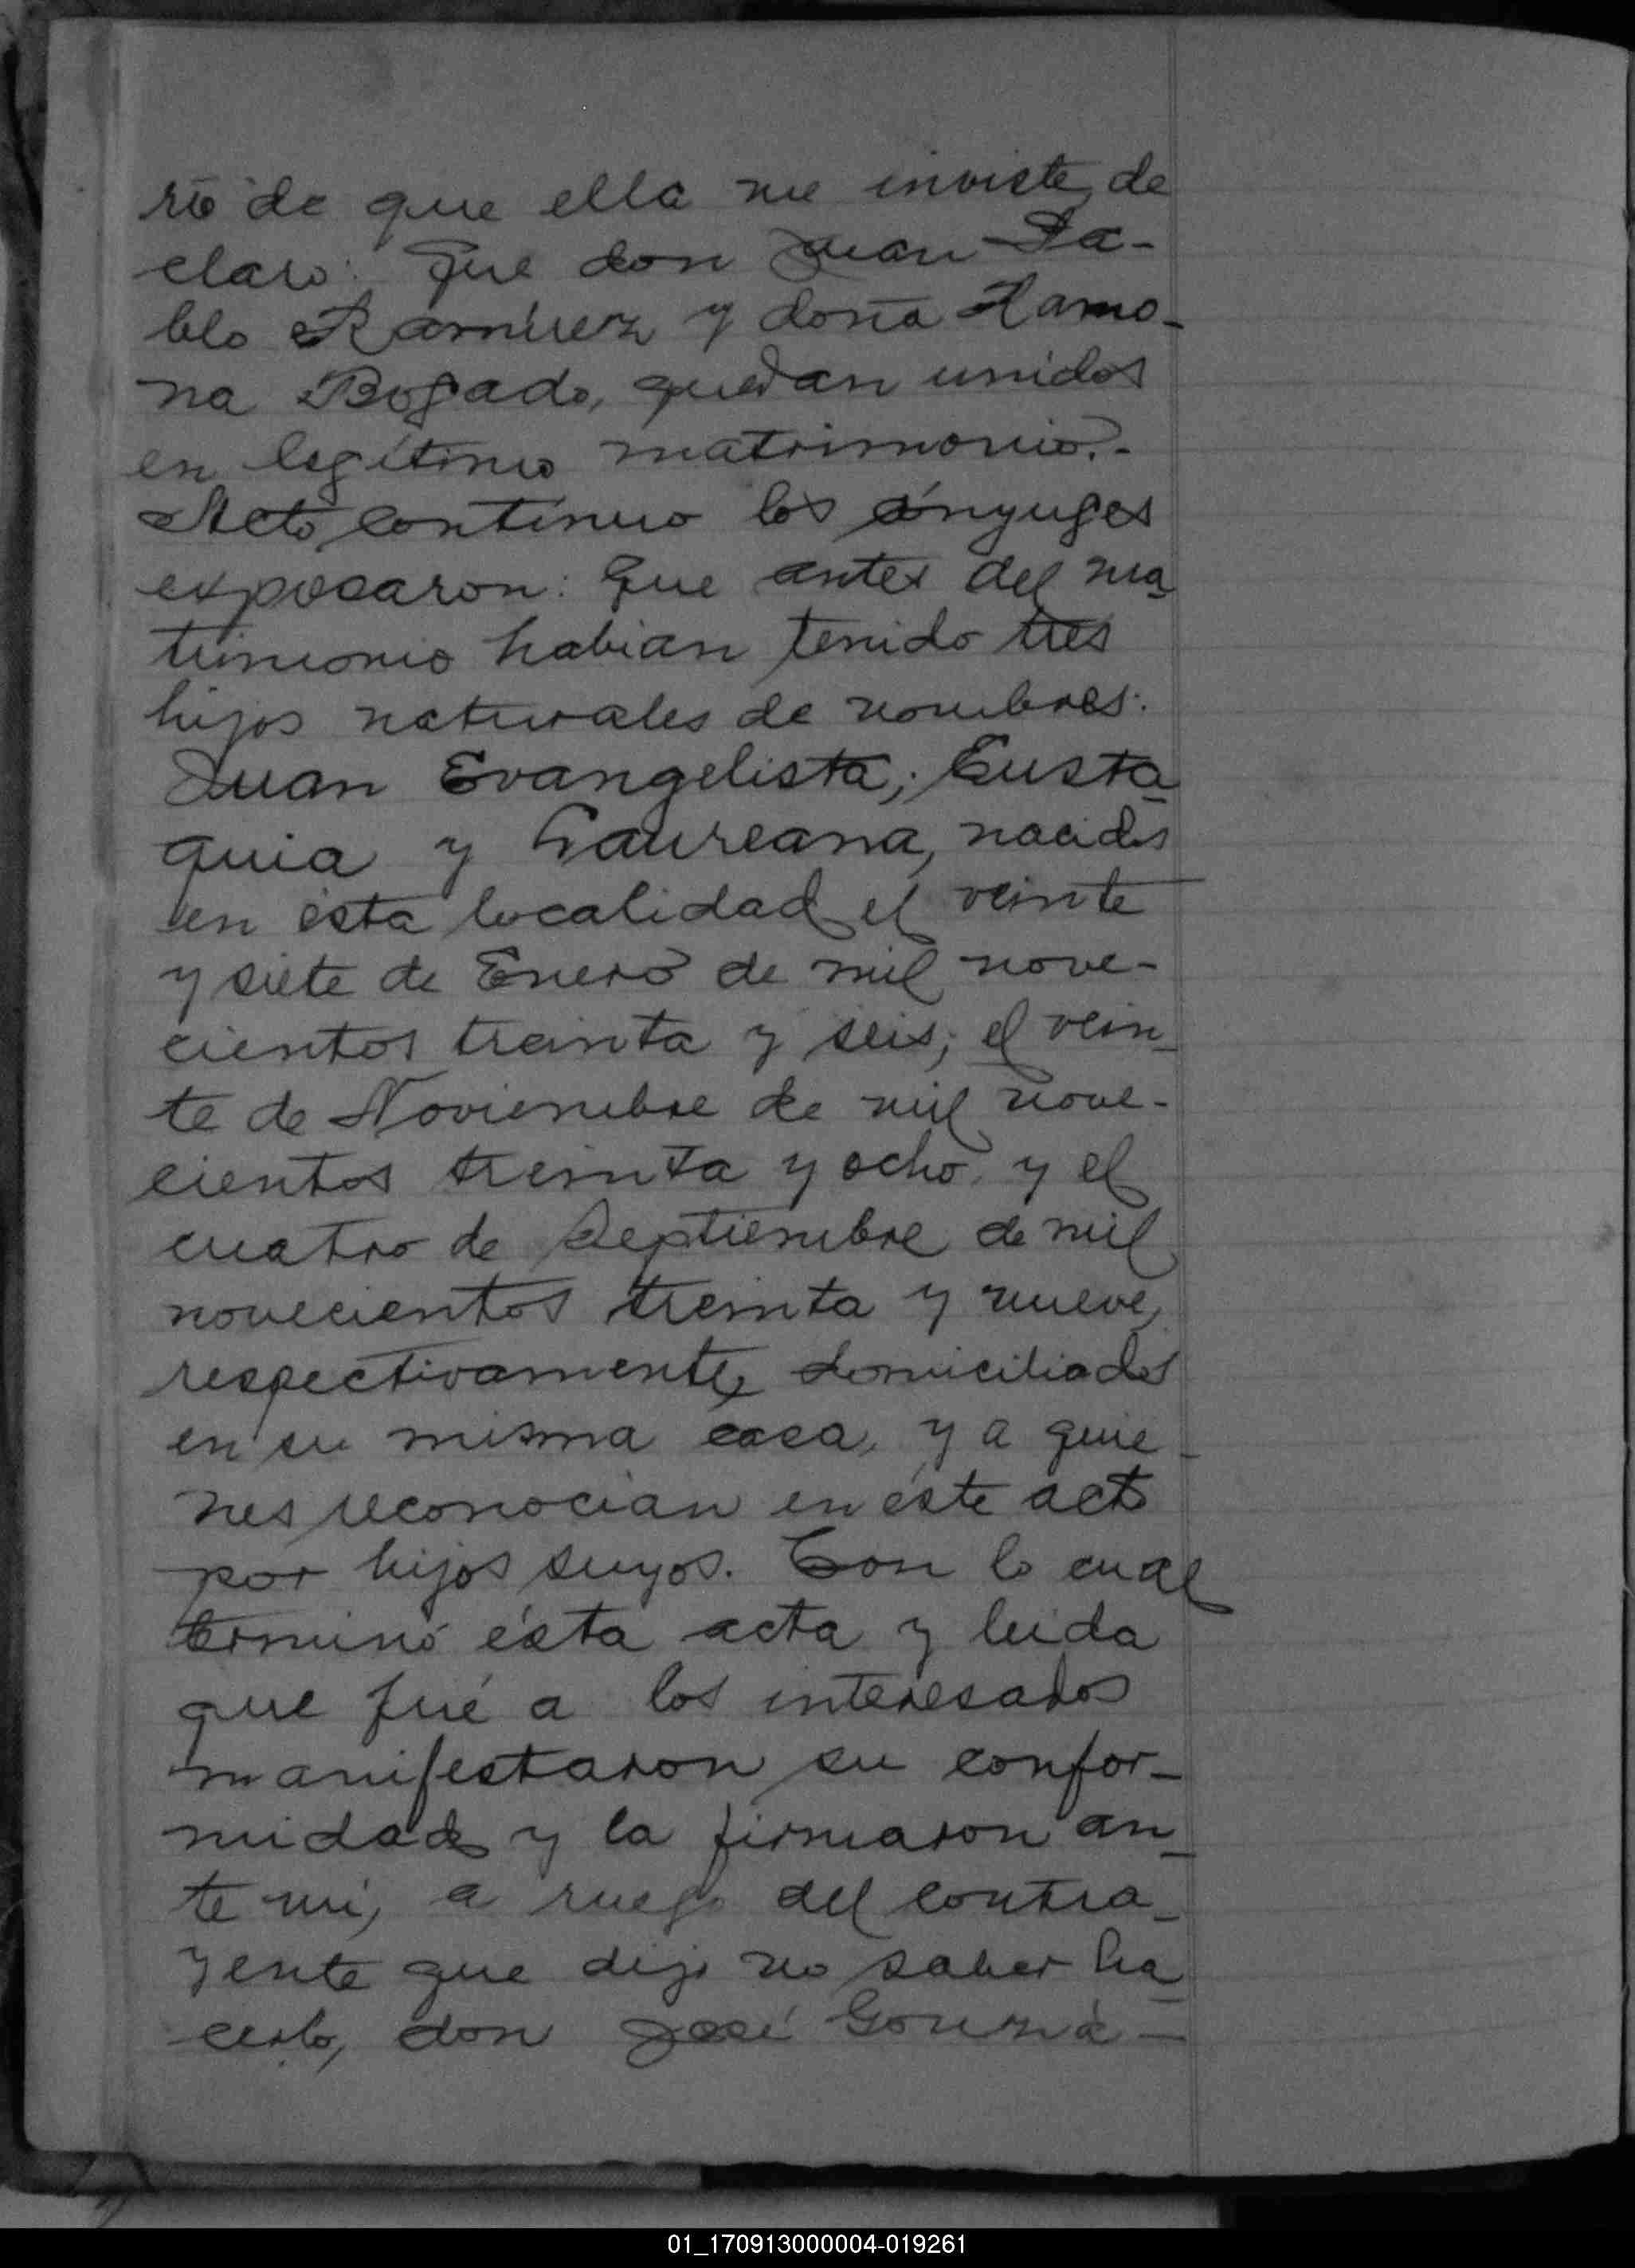 rio de que ella me inviste, de
claro: Que don Juan Pa-
blo Ramírez y doña Ramo-
na Bogado, quedan unidos
en legítimo matrimonio.-
Acto continuo los cónyuges
expresaron: Que antes del ma
trimonio habian tenido tres
hijos naturales de nombres:
Juan Evangelista; Eusta
quia y Laureana, nacidos
en ésta localidad el veinte
y siete de Enero de mil nove-
cientos treinta y seis; el vein
te de Noviembre de mil nove-
cientos treinta y ocho, y el
cuatro de Septiembre de mil
novecientos treinta y nueve,
respectivamente, domiciliados
en su misma casa, y a quie-
nes reconocian en éste acto
por hijos suyos. Con lo cual
terminó ésta acta y leida
que fué a los interesados
manifestaron su confor-
midad y la firmaron an
te mí, a ruego del contra-
yente que dijo no saber ha
cerlo, don José Gonzá-
01_170913000004-019261